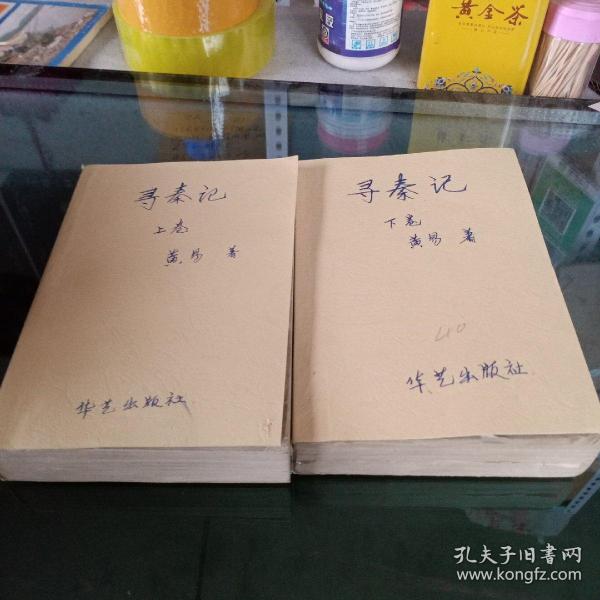 黄金茶
寻秦记
上卷
黄易 著
华艺出版社
寻秦记
下卷
黄易 著
40
华艺出版社
孔夫子旧书网
www.kongfz.com